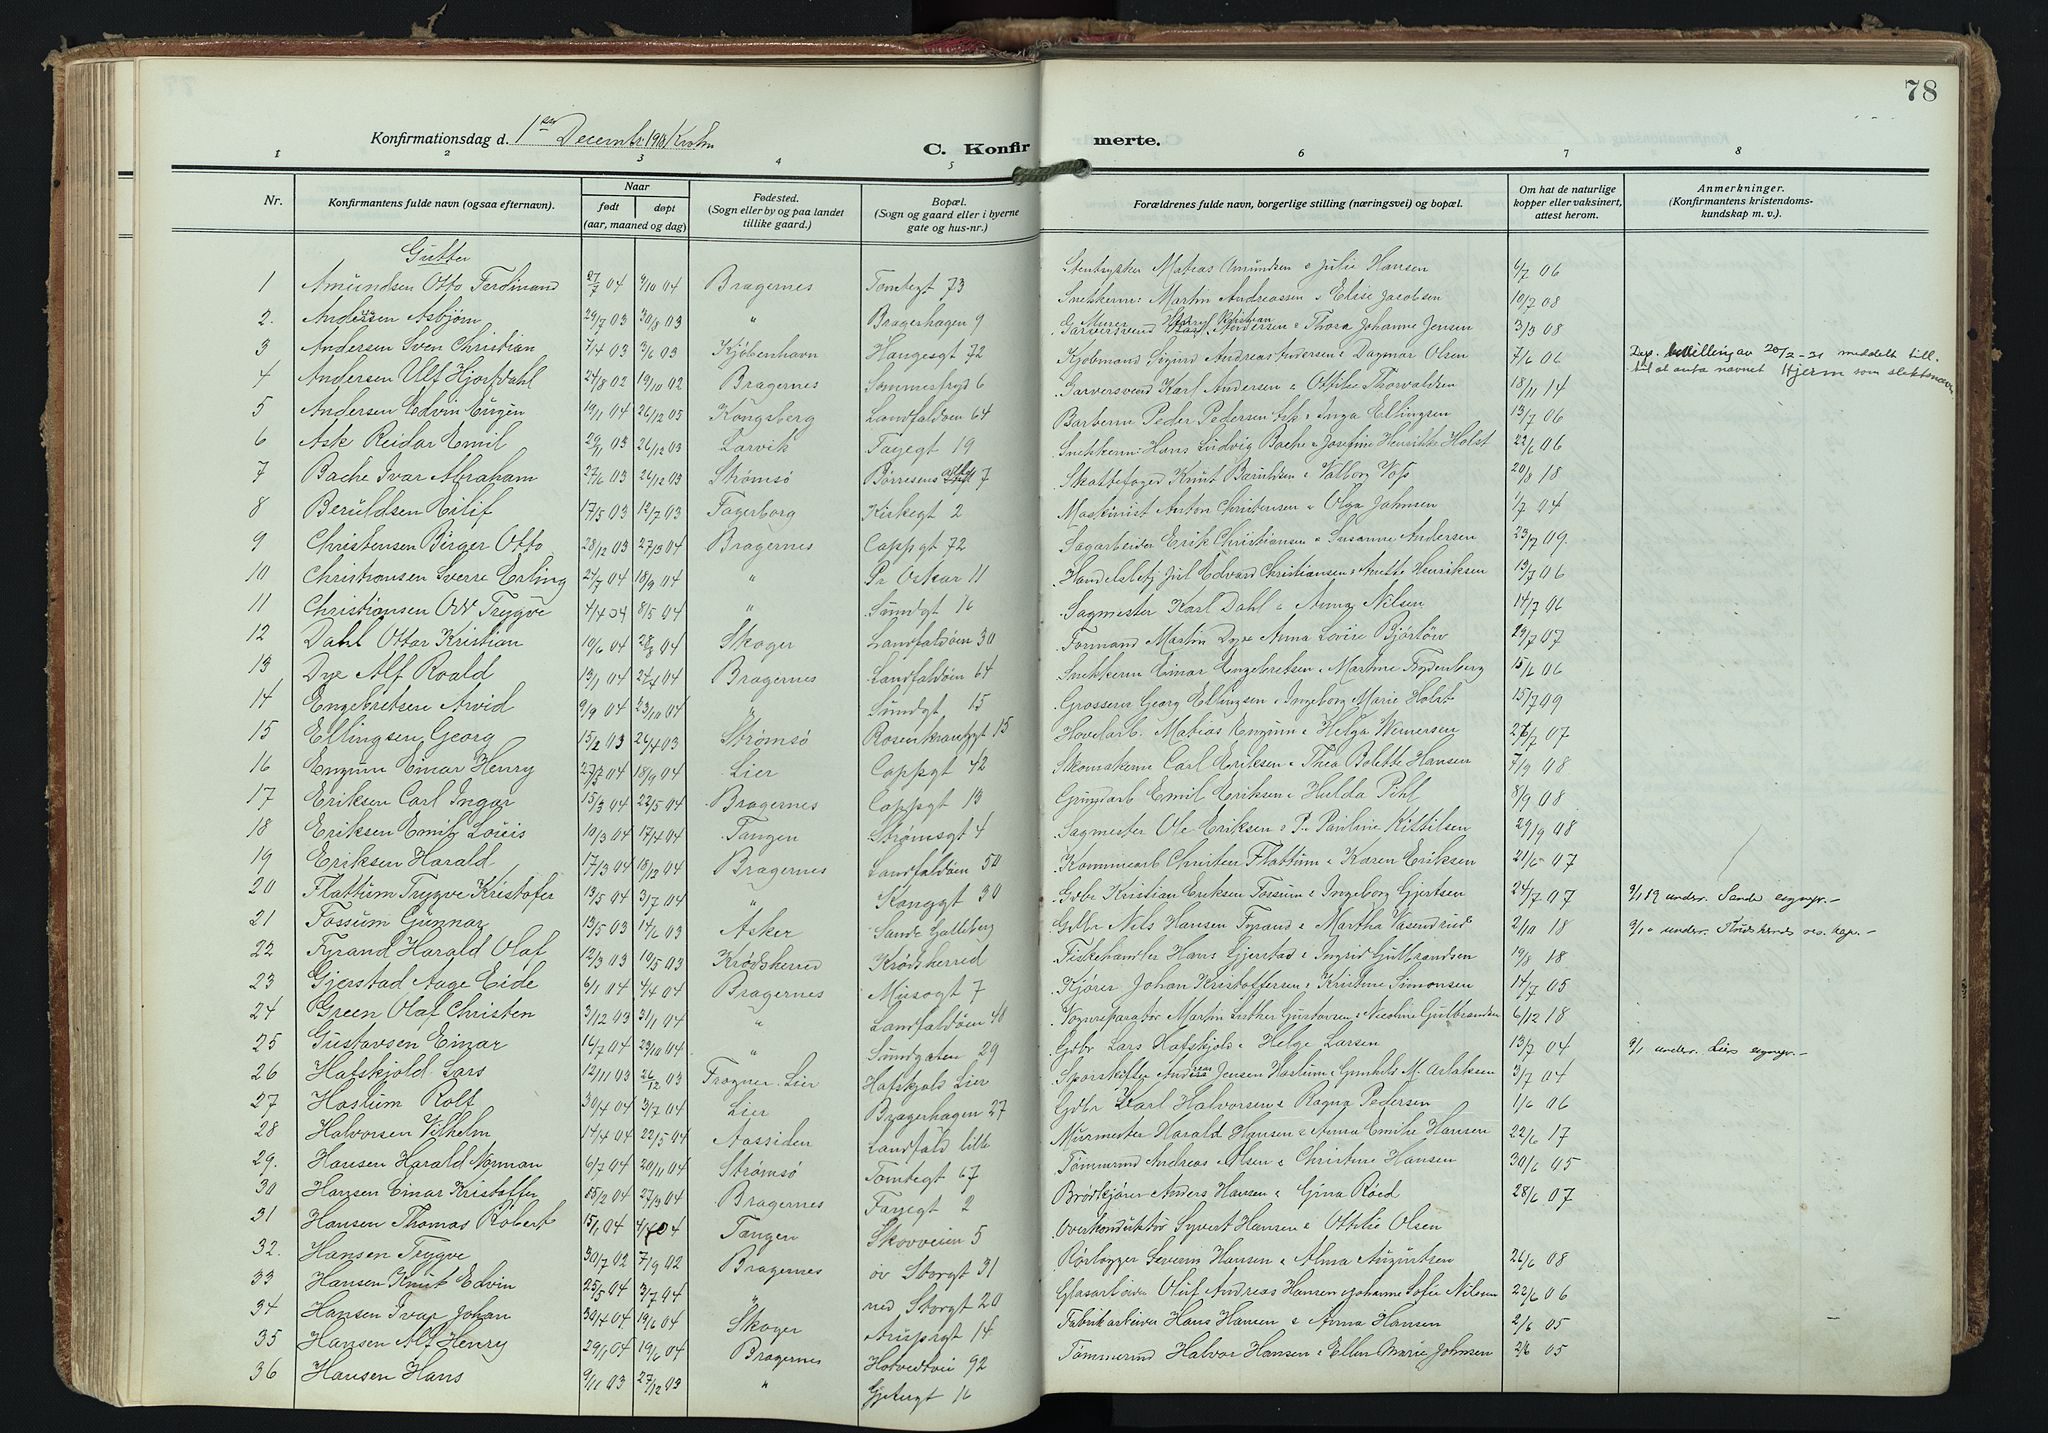 78
Konfirmationsdag d. 1ste December 1918
C. Konfirmerte.
1 2 3 4 5 6 7 8
Nr.
Konfirmantens fulde navn (ogsaa efternavn).
Naar
født
døpt
(aar, maaned og dag)
Fødested.
(Sogn eller by og paa landet
tillike gaard.)
Bopæl.
(Sogn og gaard eller i byerne
gate og hus-nr.)
Forældrenes fulde navn, borgerlige stilling (næringsvei) og bopæl.
Om hat de naturlige
kopper eller vaksinert,
attest herom.
Anmerkninger.
(Konfirmantens kristendoms-
kundskap m. v.)
Gutter
1 Amundsen Otto Ferdinand 27/7 04 9/10 04 Bragernes Tomtegt 73 Matias Amundsen o Julie Hansen 6/7 06
2. Andersen Asbjørn 29/7 03 30/8 03 " Bragerhagen 9 Snekkerm: Martin Andreassen o Elise Jacobsen 10/7 08
3 Andersen Sven Christian 7/4 03 3/6 03 Kjøbenhavn Haugesgt 72 Murer Kristian Andersen o Thora Johanne Jensen 3/3 08
4 Andersen Ulf Hjorfdahl 24/8 02 19/10 02 Bragernes Sommerfryd 6 Kjøbmand Sigurd Andreas Andersen o Dagmar Olsen 7/6 06 Dep. bevilling av 20/2-21 meddelt till.
til at anta navnet Hjerm som slektsnavn
5 Andersen Edvin Eugen 19/11 04 26/12 05 Kongsberg Landfaldøen 64 Garversvend Karl Andersen o Ottilie Thorvaldsen 18/11 14
6 Ask Reidar Emil 29/11 03 26/12 03 Larvik Fagegt 19 Barberm Peder Pedersen Ask o Inga Ellingsen 13/7 06
7 Bache Ivar Abraham 27/6 03 26/12 03 Strømsø Børresens 7 Snekkerm: Hans Ludvig Bache o Josefine Henrikke Holst 22/6 06
8 Beruldsen Eilif 17/5 03 12/7 03 Fagerborg Kirkegt 2 Skattefoged Knut Beruldsen o Valborg Voss 20/8 18
9 Christensen Birger Otto 28/12 03 27/3 04 Bragernes Cappgt 72 Maskinist Anton Christensen o Olga Johnsen 1/7 04
10 Christiansen Sverre Erling 24/7 04 18/9 04 " Pr Oskar 11 Sagarbeider Erik Christiansen o Susanne Andersen 23/7 09.
11 Christiansen Odd Trygve 4/4 04 8/5 04 " Sundgt 16 Handelsbetj Jul Edvard Christiansen o Anette Henriksen 13/7 06
12 Dahl Ottar Kristian 10/6 04 28/8 04 Skoger Landfaldøen 30 Sagmester Karl Dahl o Anna Nilsen 14/7 06
13 Dye Alf Roald 13/1 04 24/4 04 Bragernes Landfaldøen 64 Formand Martin Dye o Anna Lovise Bjørløw 23/7 07
14 Engebretsen Arvid 9/9 04 23/10 04 " Sundgt 15 Snekkerm Einar Engebretsen o Martine Frydenberg 15/6 06
15 Ellingsen Georg 15/2 03 26/4 03 Strømsø Rosenkrantzgt 15 Grosserer Georg Ellingsen o Ingeborg Marie Holst 15/7 09
16 Engum Einar Henry 04 18/9 04 Lier Cappgt 42 Høvelarb. Matias Engum o Helga Wernersen 07
17 Eriksen Carl Ingar 15/3 04 22/5 04 Bragernes Cappgt 13 Skomakerm Carl Eriksen o Thea Bolette Hansen 7/9 08
18 Eriksen Emil Louis 19/3 04 17/4 04 Tangen Strømsgt 4 Emil Eriksen o Hulda Pihl 8/9 08
19 Eriksen Harald 17/3 04 18/12 04 Bragernes Landfaldøen 50 Sagmester Ole Eriksen o Pauline Kittilsen 29/9 08
20 Flattum Trygve Kristofer 13/5 04 3/7 04 " Konggt 30 Kommunearb Christen Flattum o Karen Eriksen 21/6 07
21 Fossum Gunnar 13/5 03 14/6 03 Asker Sande Galleberg Gdbr Kristian Eriksen Fossum o Ingeborg Gjertsen 24/7 07 9/1 19 underr. Sande sogнepr.
22 Fyrand Harald Olaf 12/3 03 10/5 03 Krødsherred Krødsherred Gdbr Nels Hansen Fyrand o Martha Vasendrud 2/10 18 underr. Krødsherreds res. kap.
23 Gjerstad Aage Eide 6/1 04 4/4 04 Bragernes Museogt 7 Fiskehandler Hans Gjerstad o Ingrid Gulbrandsen 19/8 18
24 Green Olaf Christen 3/12 03 31/1 04 " Landfaldøen 48 Kjører Johan Kristoffersen o Kristine Simonsen 14/7 05
25 Gustavsen Einar 16/7 04 23/10 04 " Sundgaten 29 Vognreparatør Martin Luther Gustavsen o Nicoline Gulbrandsen 6/12 18
26 Hafskjold Lars 12/11 03 26/12 03 Frogner Lier Hafskjold Lier Gdbr Lars Hafskjold o Helge Larsen 13/7 04 9/1 underr. Liers sognepr.
27 Haslum Rolf 30/4 04 3/7 04 Lier Bragerhagen 27 Sporskifter Andreas Jensen Haslum o Gunhild M. Aslaksen 3/7 04
28 Halvorsen Vilhelm 14/4 04 22/5 04 Aassiden Landfald lille Gdbr Karl Halvorsen o Ragna Pedersen 1/6 06
29. Hansen Harald Norman 6/7 04 20/11 04 Strømsø Tomtegt 67 Murmester Harald Hansen o Anna Emilie Hansen 22/6 17
30 Hansen Einar Kristoffer 04 27/3 04 Bragernes Fagegt 2 Tømmerm Andreas Olsen o Christine Hansen 30/6 05
31 Hansen Thomas Robert 15/1 04 4/4 04 Tangen Skovveien 5 Brødkjører Anders Hansen o Gina Røed 28/6 07
32. Hansen Trygve 30/7 02 7/9 02 Bragernes øv Storgt 31 Overkonduktør Syvert Hansen o Ottilie Olsen
33 Hansen Knut Edvin 25/5 04 3/7 04 " ned Storgt 20 Rørlægger Severin Hansen o Alma Augustsen 26/6 08
34 Hansen Ivar Johan 30/4 04 19/6 04 Skoger 14 Glasarbeider Oluf Andreas Hansen o Johanne Sofie Nilsen 22/6 06
35 Hansen Alf Henry 29/1 04 19/6 04 Bragernes Hotvedtvei 92 Fabrikarbeider Hans Hansen o Anna Hansen 2/6 05
36 Hansen Hans 9/11 03 27/12 03 " Gjetergt 16 Tømmerm Halvor Hansen o Ellen Marie Johnsen 2/6 05